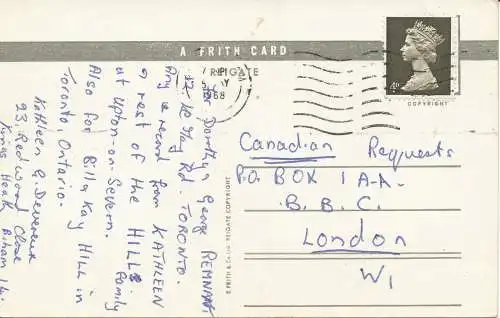 A FRITH CARD
REIGATE
1968
4D
COPYRIGHT
For Dorothy & George REMNANT
Rd. TORONTO.
Any record from KATHLEEN
& rest of the HILLS family
at Upton-on-Severn.
Also for Bill & Kay HILL in
Toronto, Ontario.
Kathleen G. Devereux
93, Redwood Close
Kings Heath B'ham 14.
© FRITH & Co. Ltd. REIGATE COPYRIGHT
Canadian Requests
P.O. BOX 1A-A.
B.B.C.
London
W1